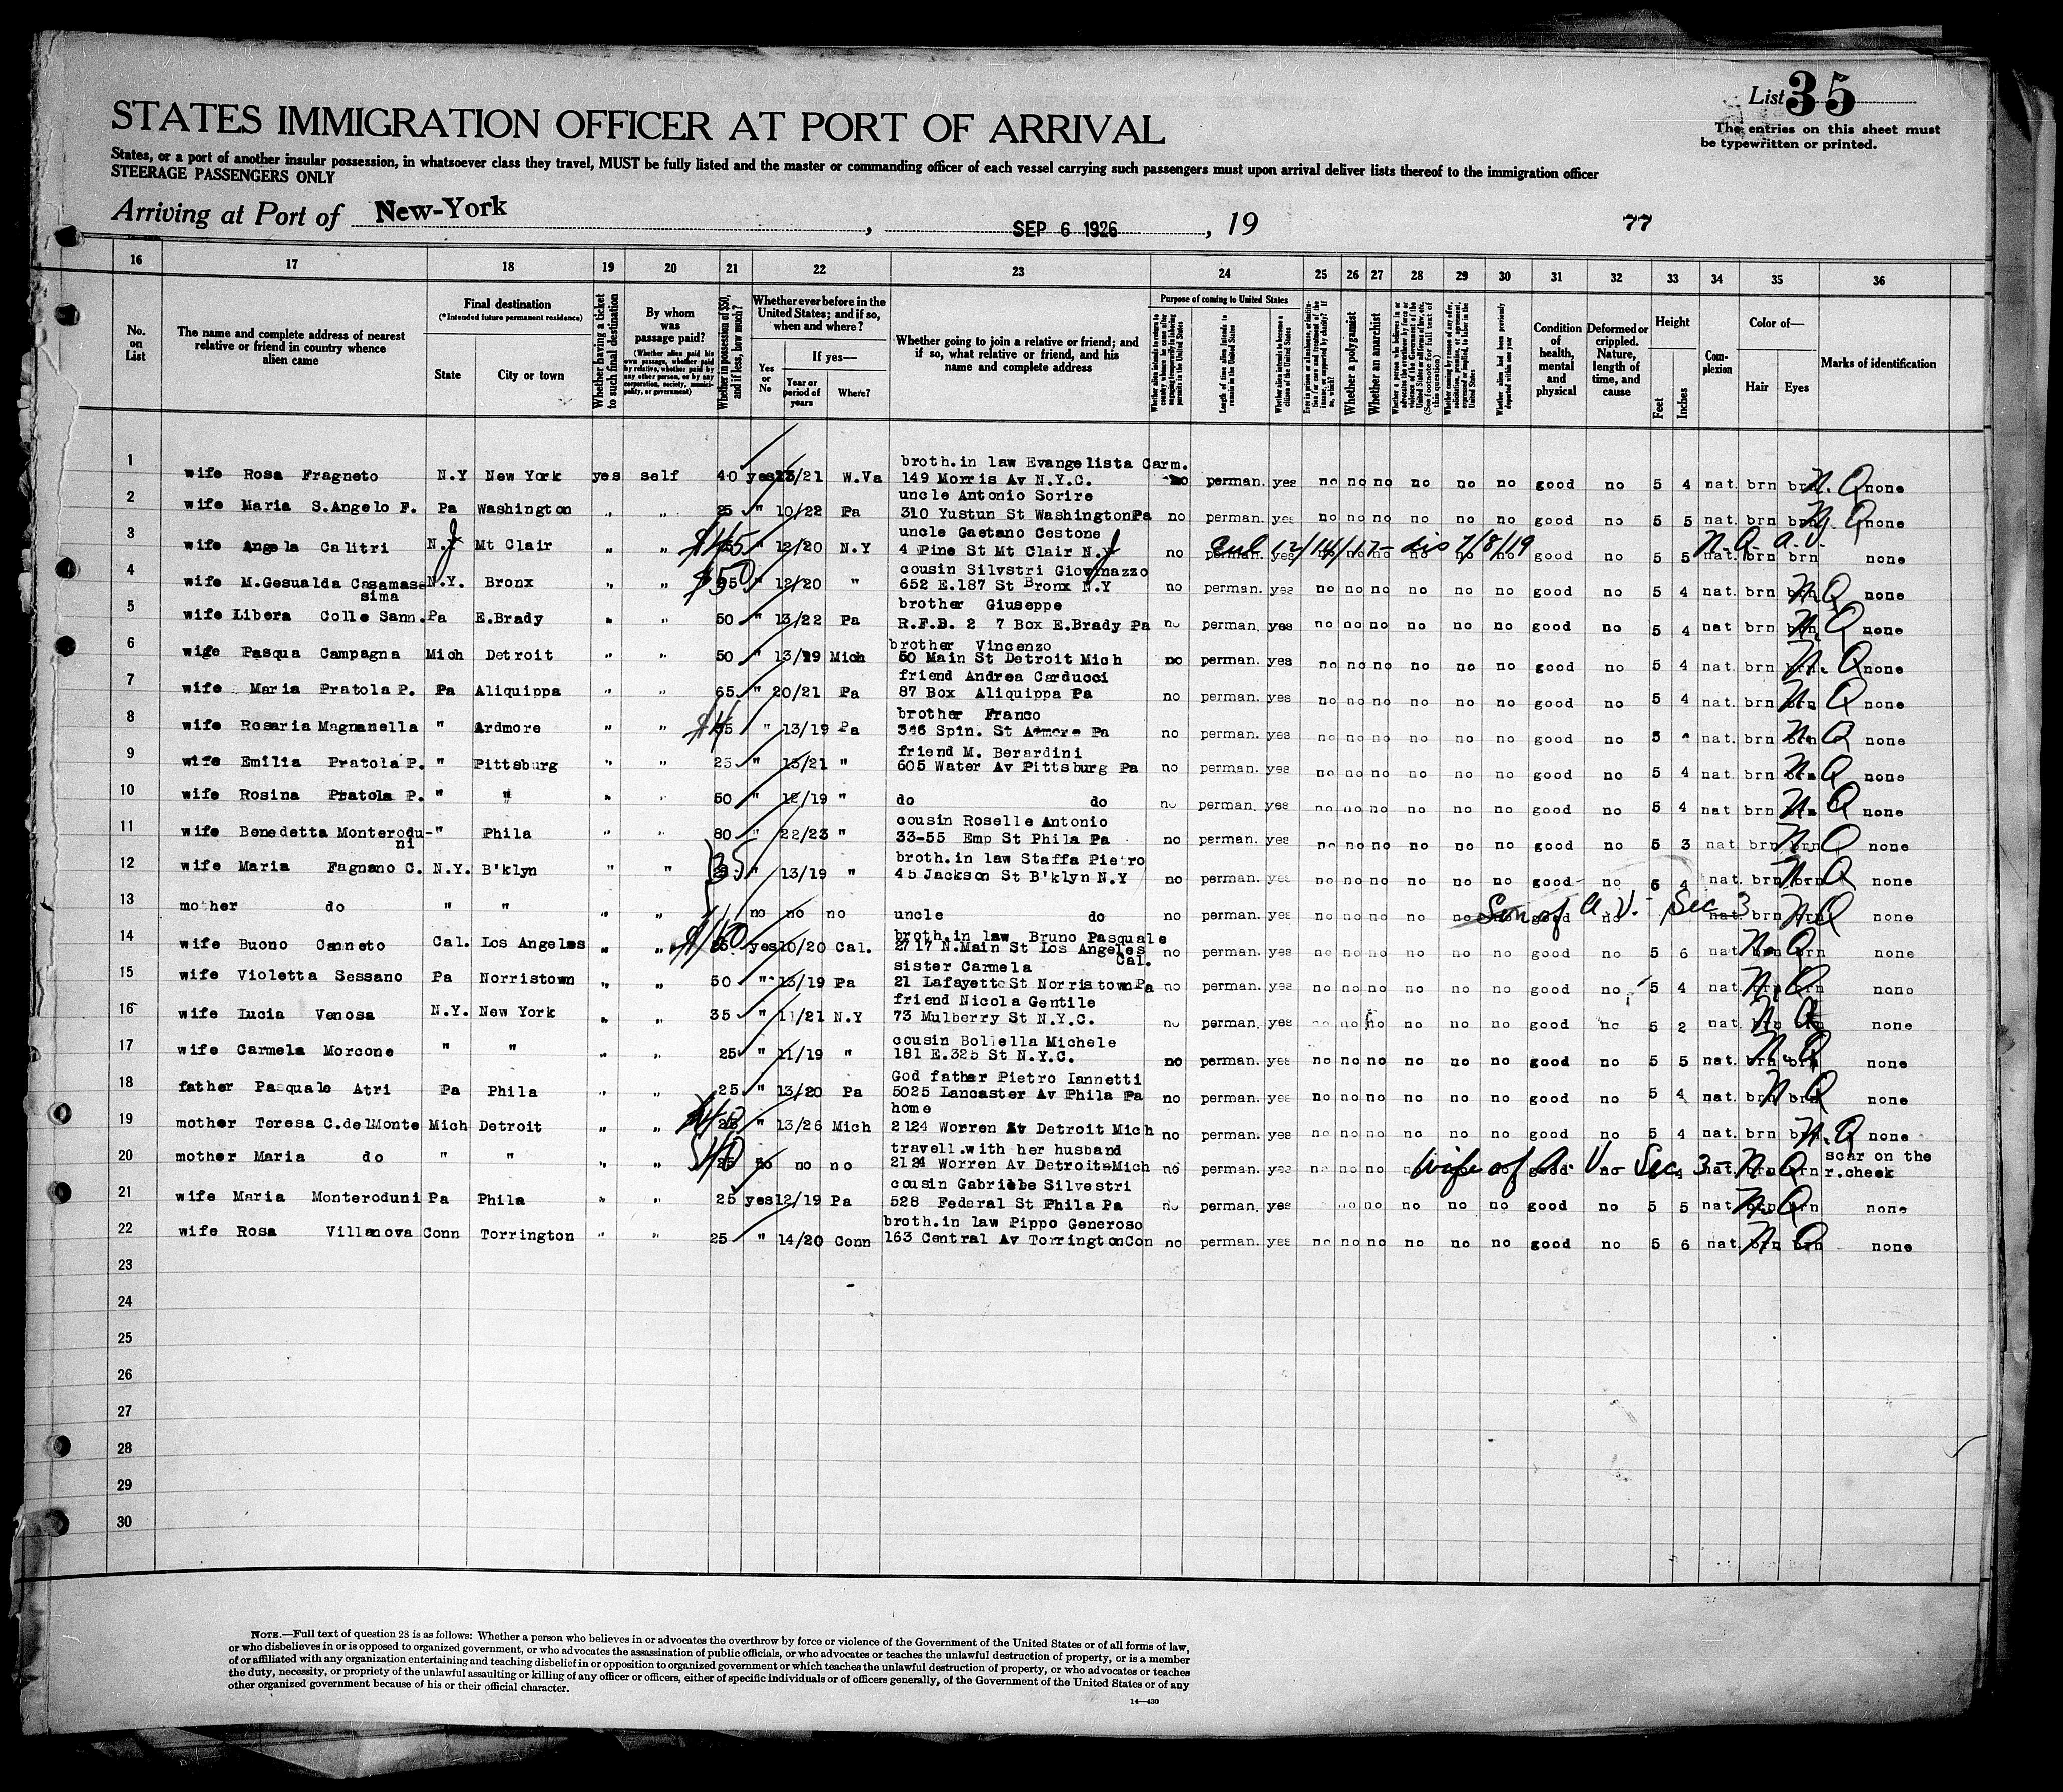 List 35
The entries on this sheet must
be typewritten or printed.
STATES IMMIGRATION OFFICER AT PORT OF ARRIVAL
States, or a port of another insular possession, in whatsoever class they travel, MUST be fully listed and the master or commanding officer of each vessel carrying such passengers must upon arrival deliver lists thereof to the immigration officer
STEERAGE PASSENGERS ONLY
Arriving at Port of New-York, SEP 6 1926, 19 77
16 17 18 19 20 21 22 23 24 25 26 27 28 29 30 31 32 33 34 35 36
No. on List
The name and complete address of nearest relative or friend in country whence alien came
Final destination
(*Intended future permanent residence)
State
City or town
Whether having a ticket to such final destination
By whom was passage paid?
(Whether alien paid his own passage, whether paid by relative, whether paid by any other person, or by any corporation, society, municipality, or government)
Whether in possession of $50, and if less, how much?
Whether ever before in the United States; and if so, when and where?
Yes or No
If yes—
Year or period of years
Where?
Whether going to join a relative or friend; and if so, what relative or friend, and his name and complete address
Purpose of coming to United States
Length of time alien intends to remain in the United States
Whether alien intends to become a citizen of the United States
Whether a polygamist
Whether an anarchist
Condition of health, mental and physical
Deformed or crippled. Nature, length of time, and cause
Height
Feet
Inches
Complexion
Color of—
Hair
Eyes
Marks of identification
1 wife Rosa Fragneto N.Y New York yes self 40 yes /21 W.Va broth.in law Evangelista Carm. 149 Morris Av N.Y.C. no perman. yes no no no no no no good no 5 4 nat. brn brn N.Q none
2 wife Maria S.Angelo F. Pa Washington " " 25 " 10/22 Pa uncle Antonio Sorire 310 Yustun St Washington Pa no perman. yes no no no no no no good no 5 5 nat. brn brn N.Q none
3 wife Angela Calitri N.J Mt Clair " " $45 " 12/20 N.Y uncle Gaetano Cestone 4 Pine St Mt Clair N.J no perman. 12/14/17 - dis 7/8/19 no good no 5 5 nat. brn brn none
4 wife M.Gesualda Casamassima N.Y. Bronx " " $50 " 12/20 " cousin Silvstri Giovinazzo 652 E.187 St Bronx N.Y no perman. yes no no no no no no good no 5 4 nat. brn brn N.Q none
5 wife Libera Colle Sann. Pa E.Brady " " 50 " 13/22 Pa brother Giuseppe R.F.D. 2 7 Box E.Brady Pa no perman. yes no no no no no no good no 5 4 nat brn brn N.Q none
6 wige Pasqua Campagna Mich Detroit " " 50 " 13/19 Mich brother Vincenzo 50 Main St Detroit Mich no perman. yes no no no no no no good no 5 4 nat. brn brn N.Q none
7 wife Maria Pratola P. Pa Aliquippa " " 65 " 20/21 Pa friend Andrea Carducci 87 Box Aliquippa Pa no perman. yes no no no no no no good no 5 4 nat. brn brn N.Q none
8 wife Rosaria Magnanella " Ardmore " " " 13/19 Pa brother Franco 346 Spin. St Admore Pa no perman. yes no no no no no no good no 5 nat. brn brn N.Q none
9 wife Emilia Pratola P. " Pittsburg " " 25 " 13/21 " friend M. Berardini 605 Water Av Pittsburg Pa no perman. yes no no no no no no good no 5 4 nat. brn brn N.Q none
10 wife Rosina Pratola P. " " " " 50 " 12/19 " do do no perman. yes no no no no no no good no 5 4 nat brn brn N.Q none
11 wife Benedetta Monteroduni " Phila " " 80 " 22/23 " cousin Roselle Antonio 33-55 Emp St Phila Pa no perman. yes no no no no no no good no 5 3 nat brn brn N.Q none
12 wife Maria Fagnano C. N.Y. B'klyn " " 35 " 13/19 " broth.in law Staffa Pietro 45 Jackson St B'klyn N.Y no perman. yes no no no no no no good no 5 4 nat. brn brn N.Q none
13 mother do " " " " no no no uncle do no perman. yes no no no no no Son of A.V. - Sec 3 good nat brn N.Q none
14 wife Buono Canneto Cal. Los Angeles " " yes 10/20 Cal. broth.in law Bruno Pasquale 2717 N.Main St Los Angeles Cal. no perman. yes no no no no no no good no 5 6 nat brn brn N.Q none
15 wife Violetta Sessano Pa Norristown " " 50 " 13/19 Pa sister Carmela 21 Lafayette St Norristown Pa no perman. yes no no no no no no good no 5 4 nat. brn brn N.Q none
16 wife Lucia Venosa N.Y. New York " " 35 " 11/21 N.Y friend Nicola Gentile 73 Mulberry St N.Y.C. no perman. yes no no no no no no good no 5 2 nat brn brn N.Q none
17 wife Carmela Morcone " " " " 25 " 11/19 " cousin Bollella Michele 181 E.325 St N.Y.C. no perman. yes no no no no no no good no 5 5 nat. brn brn N.Q none
18 father Pasquale Atri Pa Phila " " 25 " 13/20 Pa God father Pietro Iannetti 5025 Lancaster Av Phila Pa no perman. yes no no no no no no good no 5 4 nat. brn brn N.Q none
19 mother Teresa C.delMonte Mich Detroit " " 25 " 13/26 Mich home 2124 Worren Av Detroit Mich no perman. yes no no no no no no good no 5 4 nat. brn brn N.Q none
20 mother Maria do " " " " $40 no no no travell.with her husband 2124 Worren Av Detroit Mich no perman. yes no no no Wife of A.V. Sec. 3 - nat. brn brn N.Q scar on the r.cheek
21 wife Maria Monteroduni Pa Phila " " 25 yes 12/19 Pa cousin Gabrielle Silvestri 528 Federal St Phila Pa no perman. yes no no no no no good no 5 5 nat brn brn N.Q none
22 wife Rosa Villanova Conn Torrington " " 25 " 14/20 Conn broth.in law Pippo Generoso 163 Central Av Torrington Con no perman. yes no no no no no no good no 5 6 nat. brn brn N.Q none
23
24
25
26
27
28
29
30
NOTE.—Full text of question 28 is as follows: Whether a person who believes in or advocates the overthrow by force or violence of the Government of the United States or of all forms of law,
or who disbelieves in or is opposed to organized government, or who advocates the assassination of public officials, or who advocates or teaches the unlawful destruction of property, or is a member
of or affiliated with any organization entertaining and teaching disbelief in or opposition to organized government or which teaches the unlawful destruction of property, or who advocates or teaches
the duty, necessity, or propriety of the unlawful assaulting or killing of any officer or officers, either of specific individuals or of officers generally, of the Government of the United States or of any
other organized government because of his or their official character.
14—430